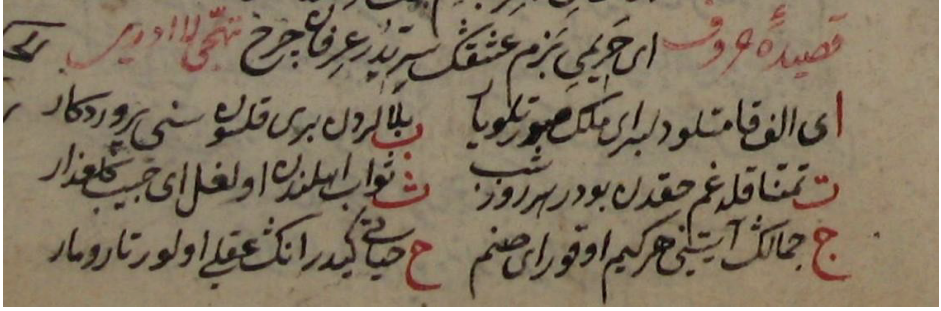 قصیدهٔ حروف ای حریمی بزم عشقك سرتپدر عرفان چرخ تهجی لا ادریس
ای الف قامتلو دلبر ای ملك صورتلو یار بلالردن بری قلسون سنی پروردکار
ت تمنا قلدغم حقدن بودر هر روز شب ث ثواب اهلندن اولغل ای حبیب گلعذار
ج جمالك آیتینی هر کیم اوقور ای صنم ح حیاتی گیدر انك عقلی اولور تارومار